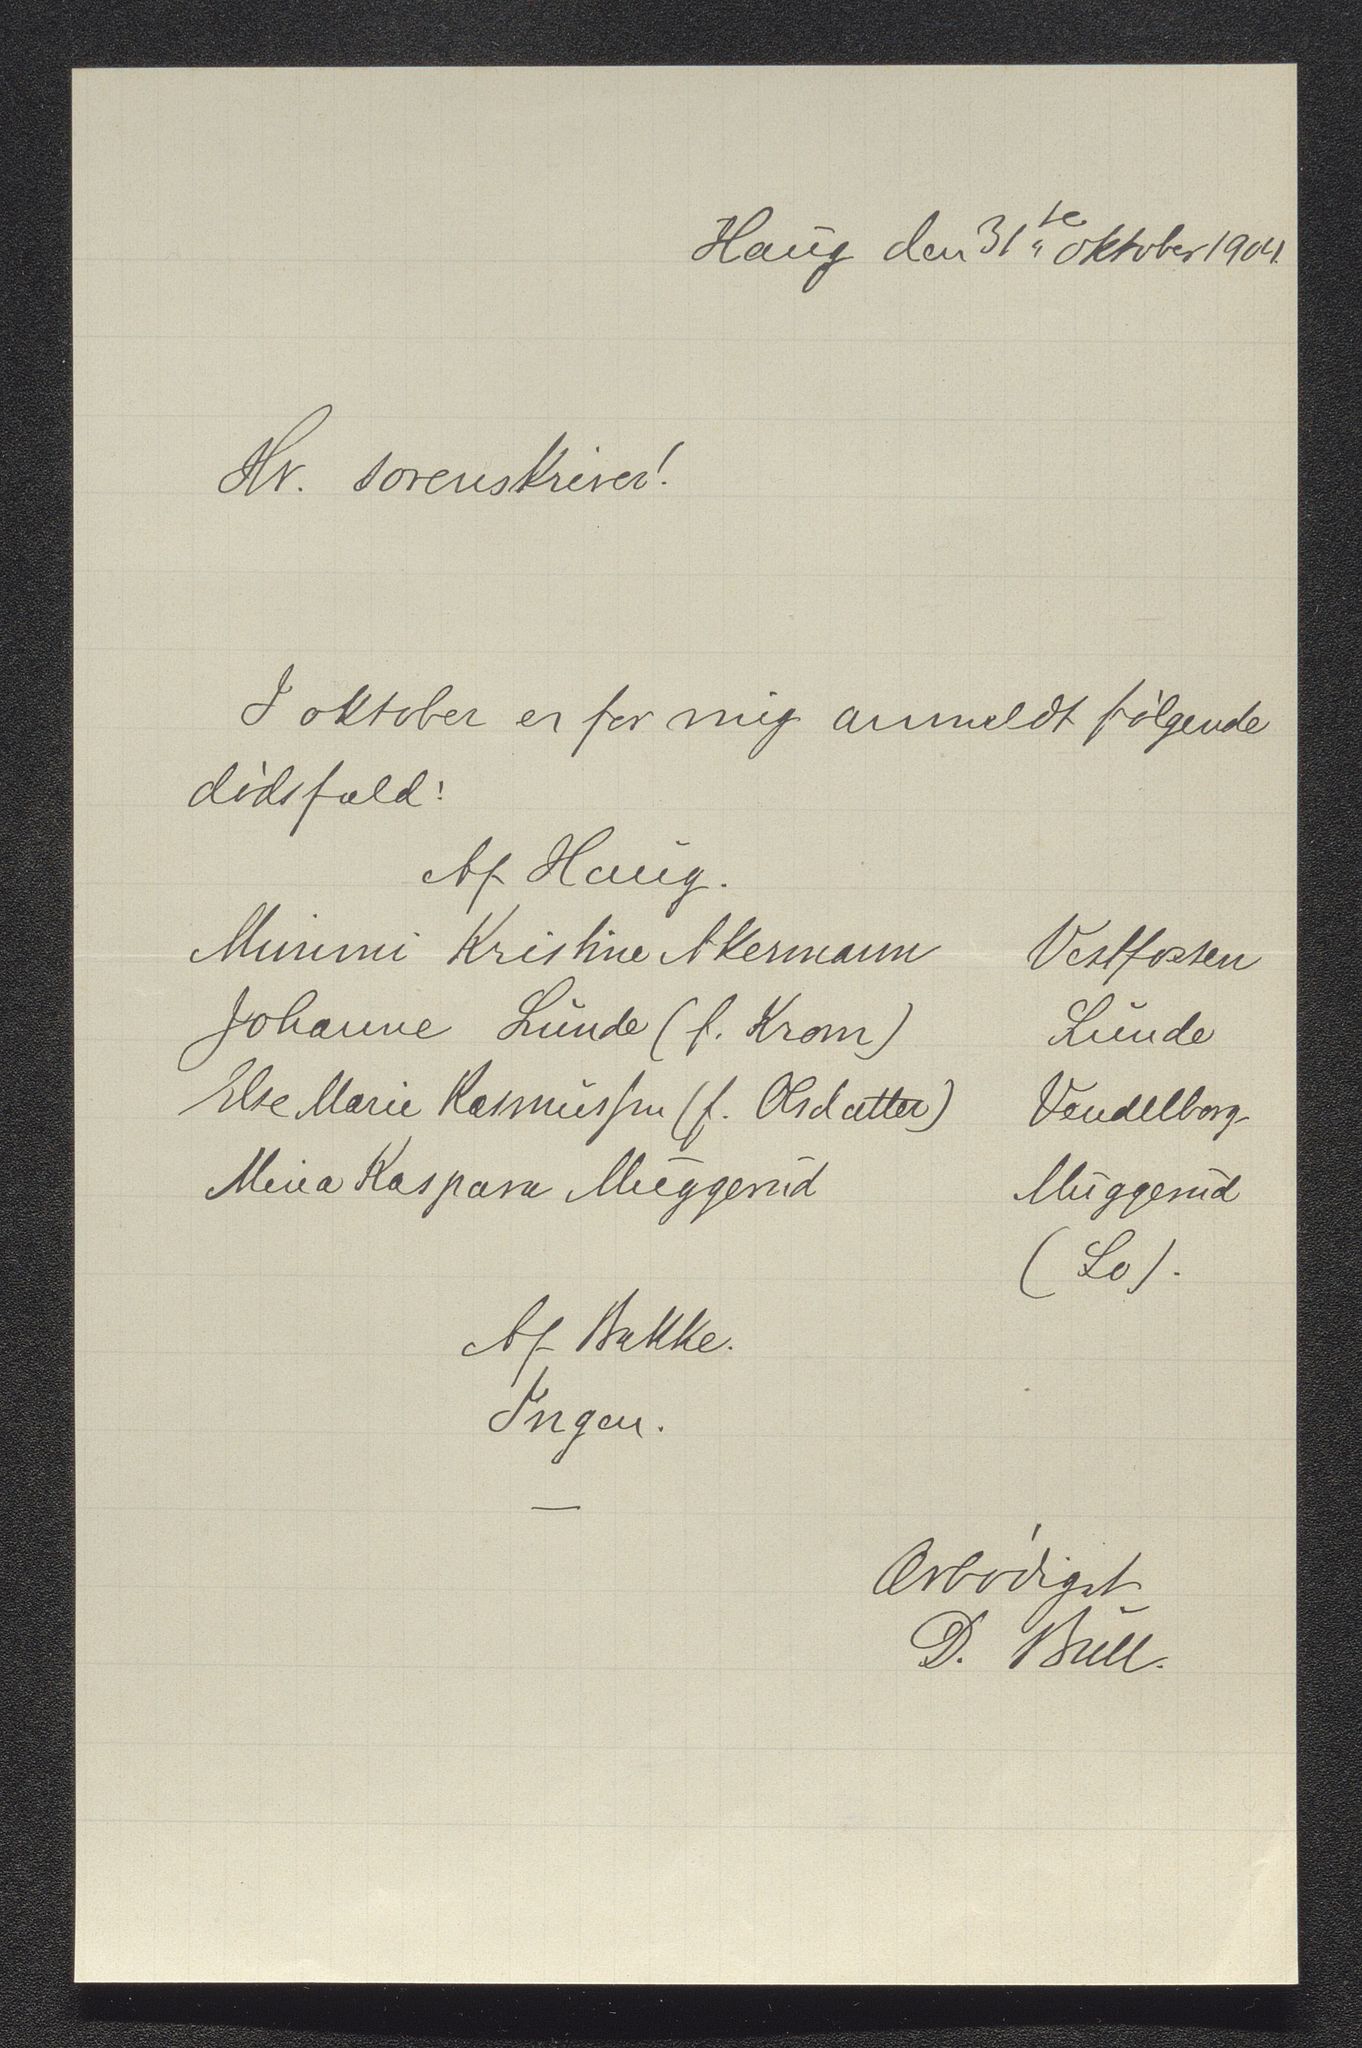 Haug den 31te oktober 1904.
Hr. sorenskriver!
I oktober er for mig anmeldt følgende
dødsfald:
Af Haug.
Mimmi Kristine Akermann Vestfossen
Johanne Lunde (f. Krom) Lunde
Else Marie Rasmussen (f. Olsdatter) Vendelborg
Mina Kaspara Muggerud Muggerud
(Lo).
Af Bakke.
Ingen.
—
Ærbødigst
D. Bull.